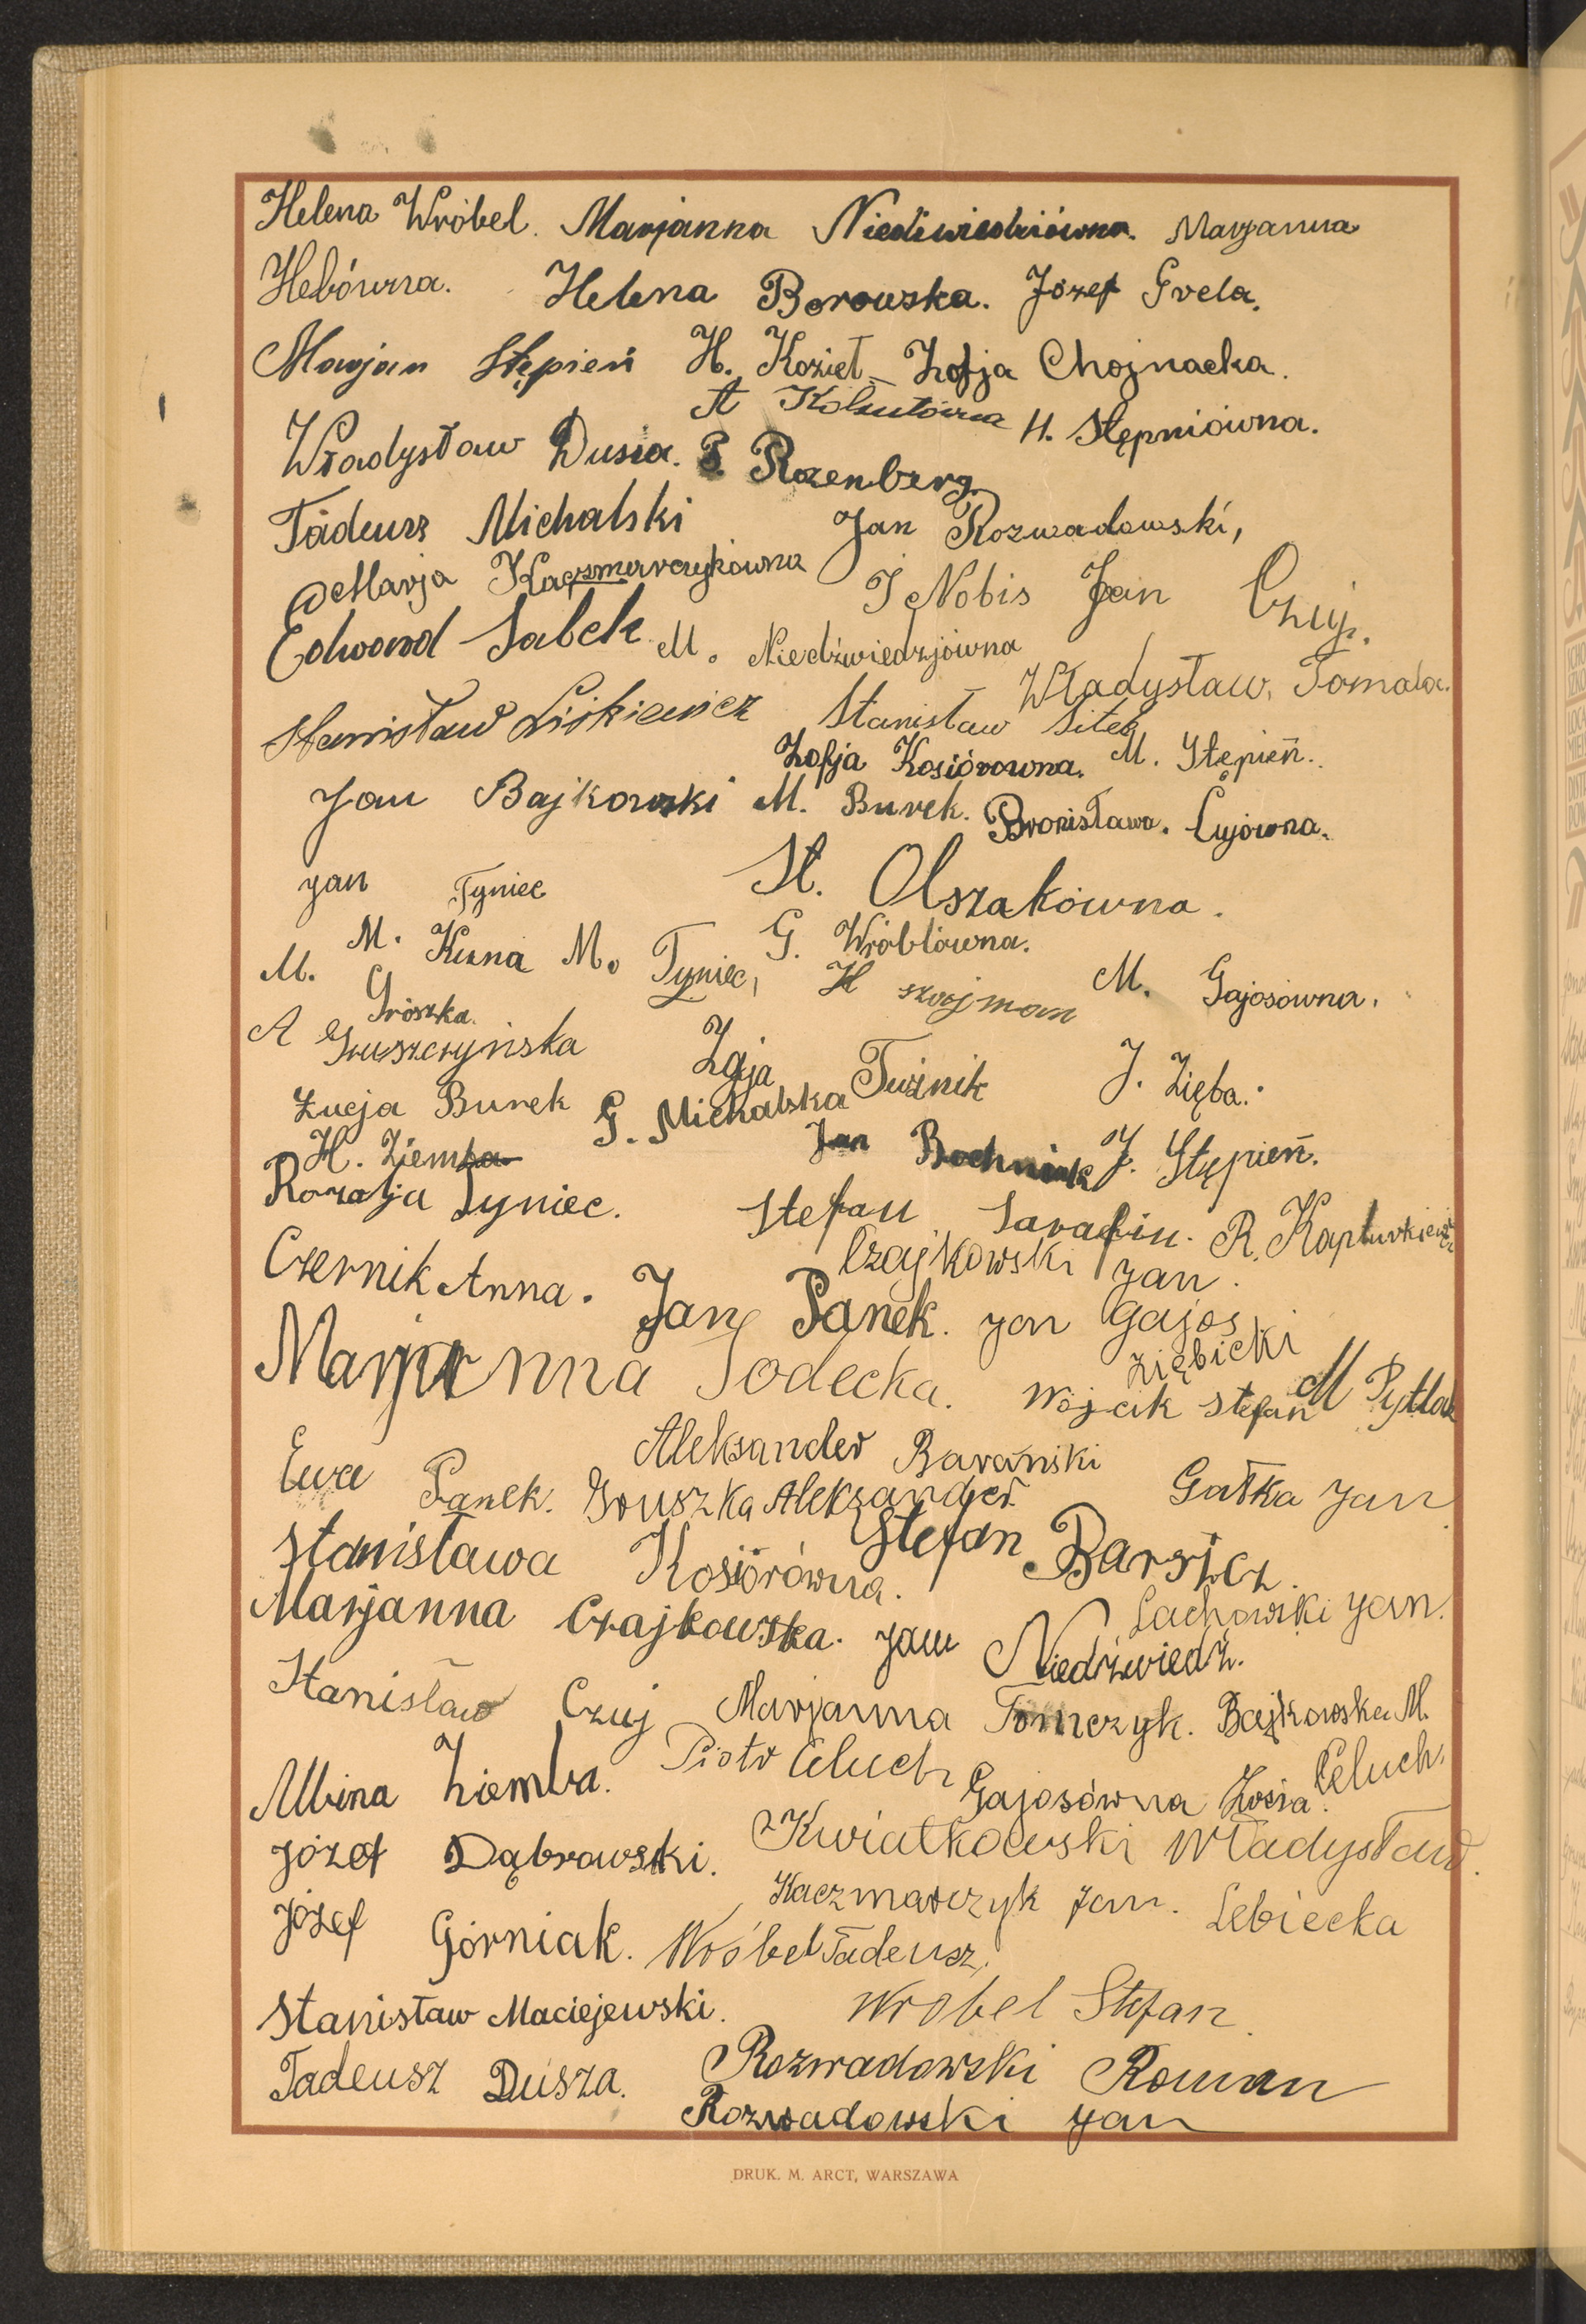 Helena Wróbel. Marjanna Niedźwiedziówna. Marjanna
Hebówna. Helena Borowska. Józef Grela.
Marjan Stępień H. Kozieł Zofja Chojnacka.
A Kołsutówna H. Stępniówna.
Władysław Dusza. P. Rozenberg.
Tadeusz Michalski Jan Rozwadowski,
Marja Kaczmarczykówna J Nobis Jan Czuj.
Edward Sabek M. Niedźwiedzjówna
Władysław, Tomala.
Stanisław Liśkiewicz Stanisław Sitek
Zofja Kosiórowna. M. Stępień.
Jan Bajkowski M. Burek. Bronisława. Cujówna.
Jan Tyniec St. Olszakówna.
M. Kuna M. Tyniec, G. Wróblówna.
M. Grószka. H szojman M. Gajosówna.
A Gruszczyńska Zofja Tuźnik J. Zięba.
Łucja Burek G. Michalska
H. Ziemba Jan Bochniak J. Stępień.
Rozalja Tyniec. Stefan Sarafin. R. Kapturkiewicz
Czernik Anna. Czajkowski Jan.
Jan Panek. Jan Gajos
Marjanna Sodecka. Ziębicki
Wójcik Stefan M Pytlak
Aleksander Barański
Ewa Panek. Gruszka Aleksander. Gałka Jan
Stanisława Kosiorówna. Stefan Barsicz.
Marjanna Czajkowska. Jan Niedźwiedź. Lachowski Jan.
Stanisław Czuj Marjanna Tomczyk. Bajkowska M.
Albina Ziemba. Piotr Celuch Gajosówna Zosia. Celuch.
Józef Dąbrowski. Kwiatkowski Władysław.
Józef Górniak. Kaczmarczyk Jan. Lebiecka
Wróbel Tadeusz,
Stanisław Maciejewski. Wróbel Stefan.
Tadeusz Dusza. Rozwadowski Roman
Rozwadowski Jan
DRUK. M. ARCT, WARSZAWA